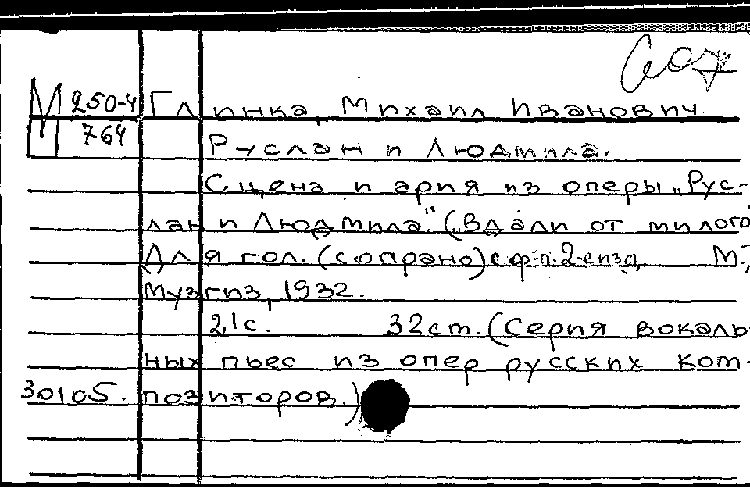 М 250-4 Глинка, Михаил Иванович
764 Руслан и Людмила.
Сцена и ария из оперы „Рус-
лан и Людмила." (Вдали от милого
Для гол. (сопрано) с ф-п. 2-е изд. М.,
Музгиз, 1932.
21с. 32см. (Серия вокаль
ных пьес из опер русских ком-
30105. позиторов.)